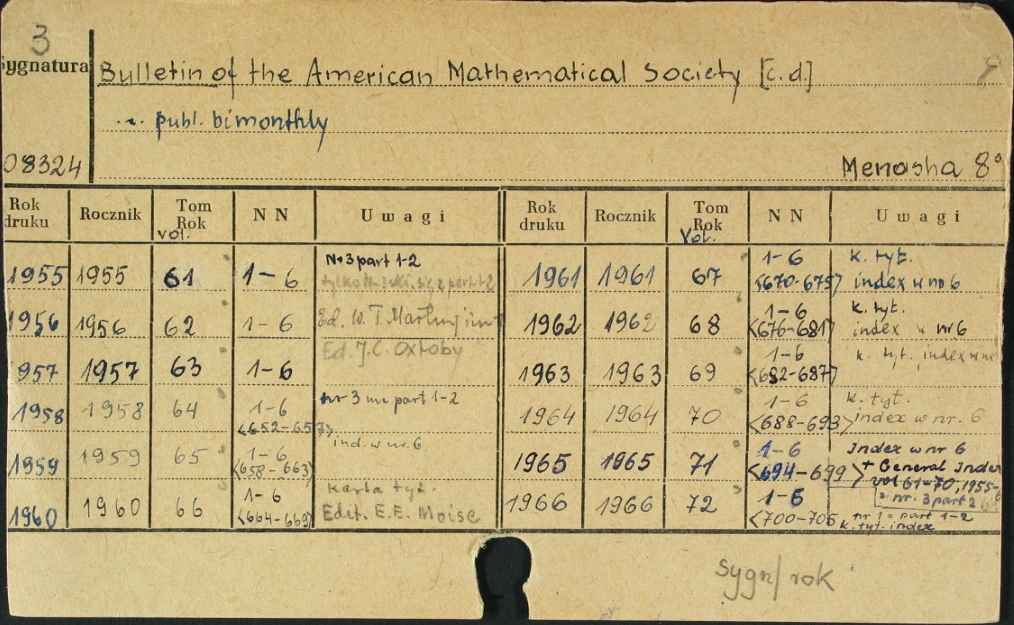 3
Sygnatura
Bulletin of the American Mathematical Society [c.d.]
publ. bimonthly
08324
Menasha 8°
Rok druku Rocznik Tom Rok vol. NN Uwagi Rok druku Rocznik Tom Rok Vol. NN Uwagi
1955 1955 61 1-6 Nr 3 part 1-2
1961 1961 67 1-6 <670-675> k. tyt. index w nr 6
1956 1956 62 1-6 Ed. W. T. Martin
1962 1962 68 1-6 <676-681> k. tyt. index w nr 6
957 1957 63 1-6 Ed. J.C. Oxtoby
1963 1963 69 1-6 <682-687> k. tyt. index w nr
1958 1958 64 1-6 <652-657> nr 3 ma part 1-2
1964 1964 70 1-6 <688-693> k. tyt. index w nr. 6
1959 1959 65 1-6 <658-663> ind. w nr. 6
1965 1965 71 1-6 <694-699> Index w nr 6 + General Index vol 61-70, 1955-
1960 1960 66 1-6 <664-669> karta tyt. Edit. E.E. Moise
1966 1966 72 1-6 <700-705 nr. 3 part 2 nr 1 = part 1-2 k. tyt. index
sygn/rok